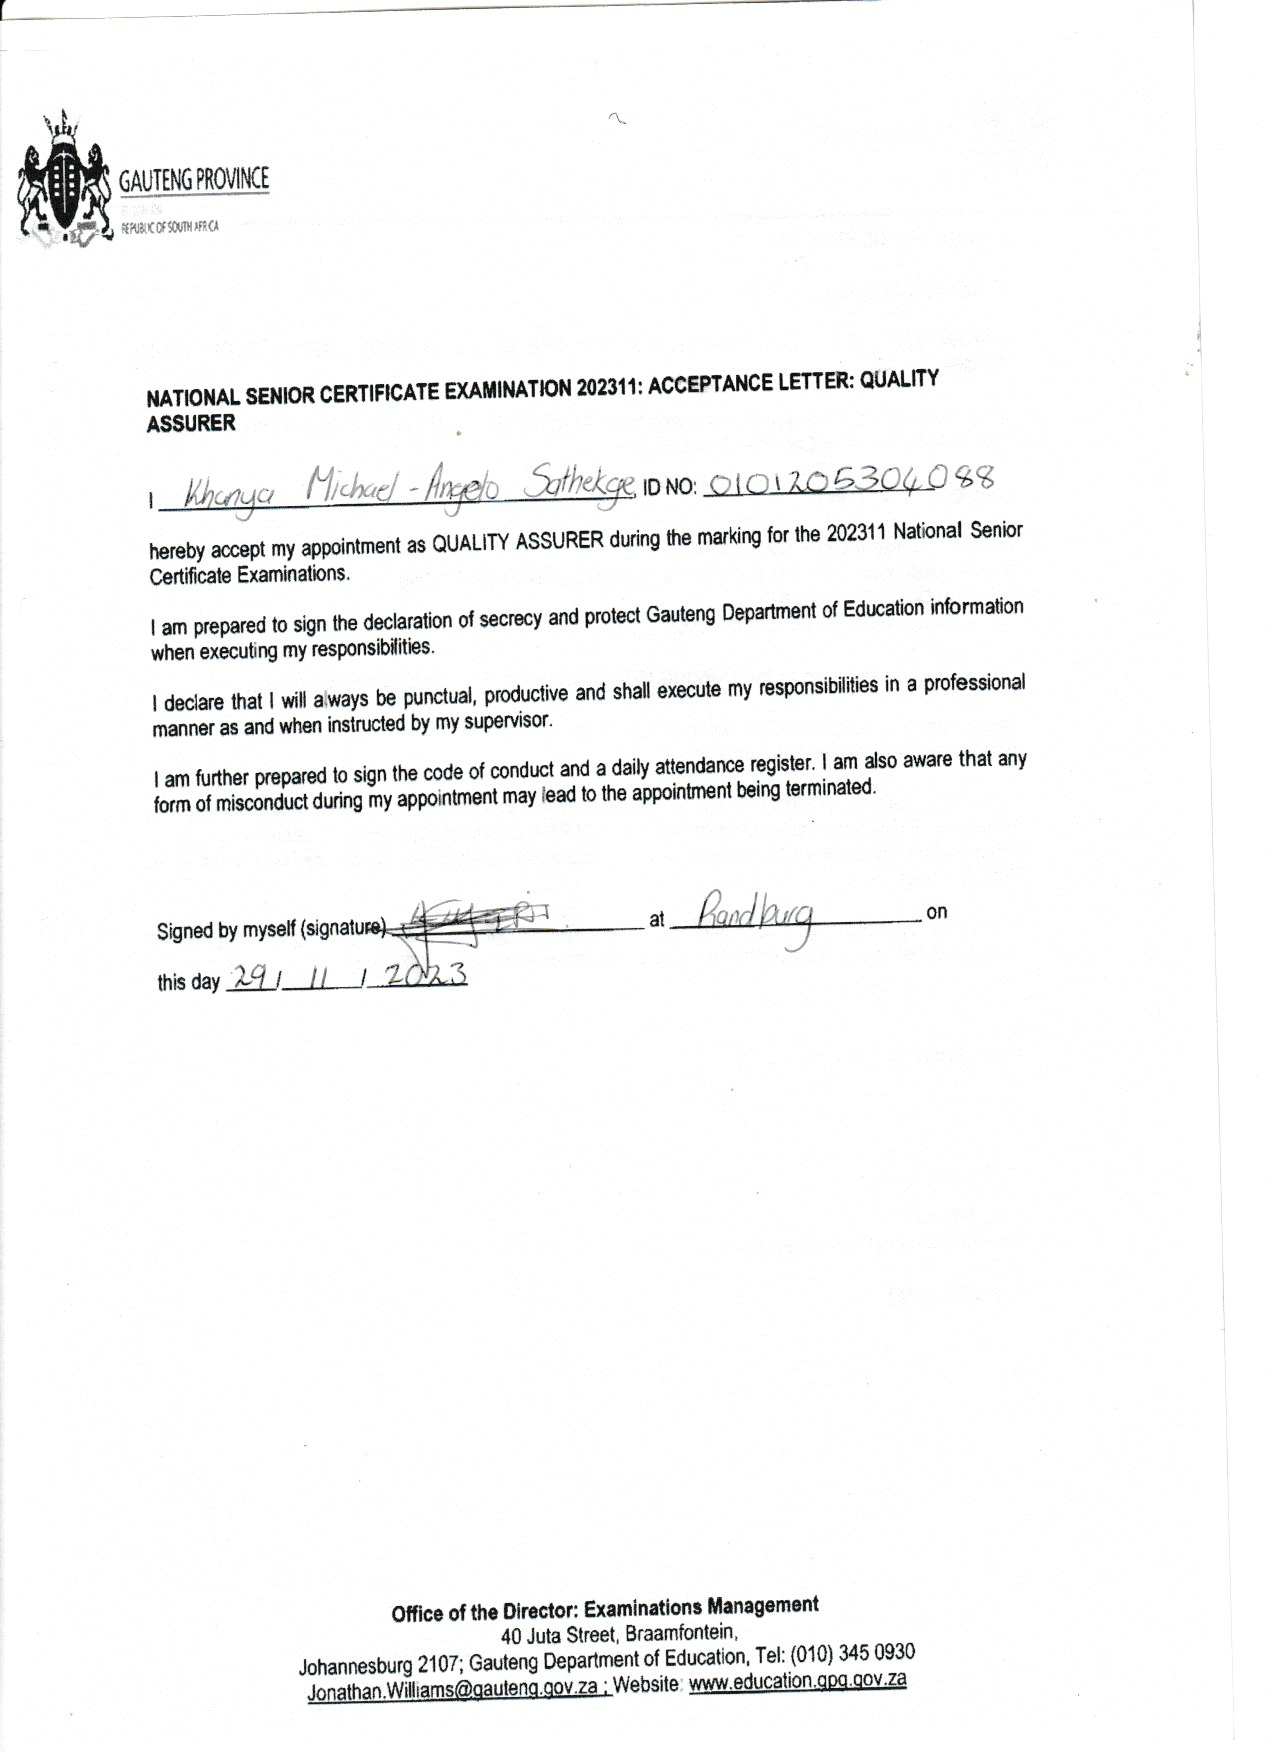 GAUTENG PROVINCE
REPUBLIC OF SOUTH AFRICA
NATIONAL SENIOR CERTIFICATE EXAMINATION 202311: ACCEPTANCE LETTER: QUALITY
ASSURER
I Khanya Michael-Angelo Sathekge, ID NO: 0101205304088
hereby accept my appointment as QUALITY ASSURER during the marking for the 202311 National Senior
Certificate Examinations.
I am prepared to sign the declaration of secrecy and protect Gauteng Department of Education information
when executing my responsibilities.
I declare that I will always be punctual, productive and shall execute my responsibilities in a professional
manner as and when instructed by my supervisor.
I am further prepared to sign the code of conduct and a daily attendance register. I am also aware that any
form of misconduct during my appointment may lead to the appointment being terminated.
Signed by myself (signature) at Randburg on
this day 29/ 11 / 2023
Office of the Director: Examinations Management
40 Juta Street, Braamfontein,
Johannesburg 2107; Gauteng Department of Education, Tel: (010) 345 0930
Jonathan.Williams@gauteng.gov.za ; Website: www.education.gpg.gov.za